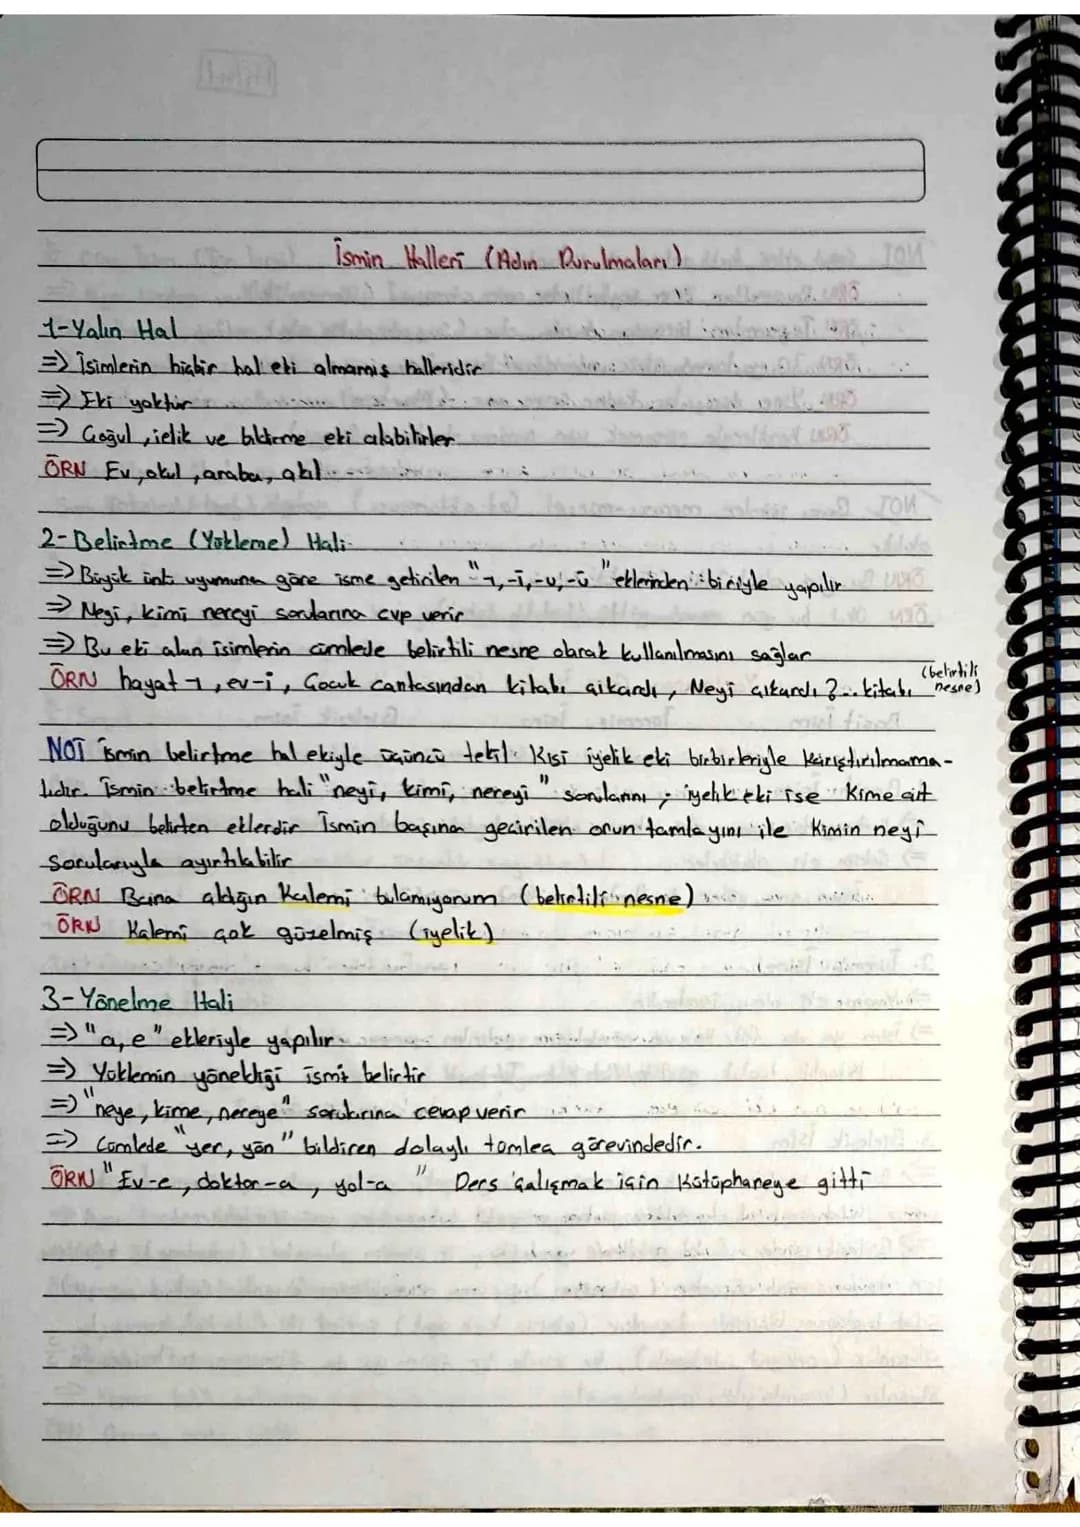 İsmin Halleri (Adın Durulmaları)
1-Yalın Hal
=> İsimlerin hiçbir hal eki almamış halleridir
=> Eki yoktur
=> Çoğul, ielik ve bildirme eki alabilirler
ÖRN Ev, okul, araba, akıl
2-Belirtme (Yükleme) Hali
=> Büyük ünlü uyumuna göre isme getirilen "ı, -i, -u, -ü" eklerinden biriyle yapılır
=> Neyi, kimi nereyi sorularına cvp verir
=> Bu eki alan isimlerin cümlede belirtili nesne olarak kullanılmasını sağlar
ÖRN hayat-ı, ev-i, Çocuk çantasından kitabı çıkardı, Neyi çıkardı?... kitabı (belirtili nesne)
NOT ismin belirtme hal ekiyle üçüncü tekil Kişi iyelik eki birbirleriyle karıştırılmama-
lıdır. İsmin belirtme hali "neyi, kimi, nereyi" sorularını; iyelik eki ise Kime ait
olduğunu belirten eklerdir İsmin başına geçirilen onun tamlayını ile Kimin neyi
sorularıyla ayırtılabilir
ÖRN Bana aldığın Kalemi bulamıyorum (belirtili nesne)
ÖRN Kalemi çok güzelmiş (iyelik)
3-Yönelme Hali
=> "a, e" ekleriyle yapılır
=> Yüklemin yöneldiği ismi belirtir
=> "neye, kime, nereye" sorularına cevap verir
=> Cümlede "yer, yön" bildiren dolaylı tümleç görevindedir.
ÖRN "Ev-e, doktor-a, yol-a" Ders çalışmak için Kütüphaneye gitti